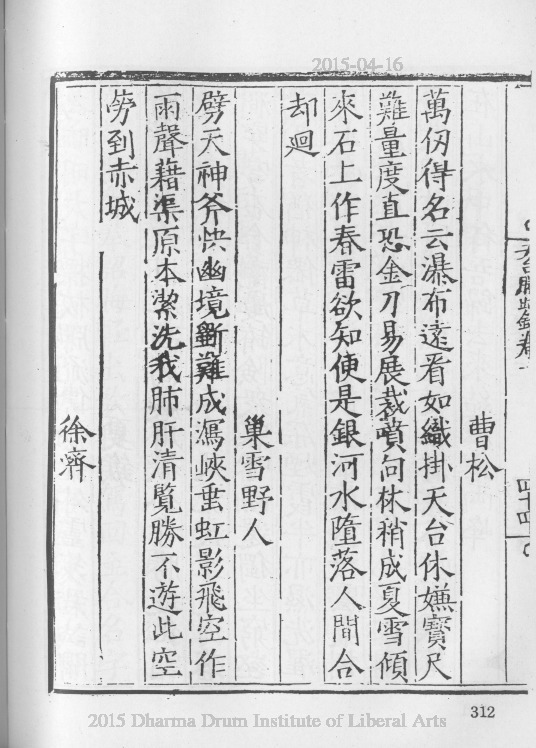 2015-04-16
天台勝蹟錄卷一
四十四
曹松
萬仞得名云瀑布遠看如織掛天台休嫌寶尺
難量度直恐金刀易展裁噴向林稍成夏雪傾
來石上作春雷欲知便是銀河水墮落人間合
却迴
巢雪野人
劈天神斧快幽境斷難成瀉峽垂虹影飛空作
雨聲藉渠原本潔洗我肺肝清覧勝不遊此空
勞到赤城
徐
312
2015 Dharma Drum Institute of Liberal Arts